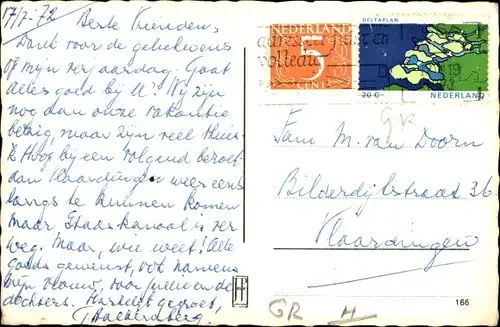 17/7-'72 Beste Vrienden,
Dank voor de gelukwens
op mijn verjaardag. Gaat
alles goed bij U? Wij zijn
nog aan onze vakantie
bezig, maar zijn veel thuis
Hoop bij een volgend
dan Vlaardingen weer eens
langs te kunnen komen
maar, is ver
weg. Maar, wie weet! Alle
goeds gewenst, ook namens
mijn vrouw, voor jullie en de
dochters. Hartelijk gegroet,
NEDERLAND
5
CENT
DELTAPLAN
20 C
NEDERLAND
adresseer juist en
volledig
19
GR
Fam M. van Doorn
Bilderdijkstraat 36
Vlaardingen
GR H
166